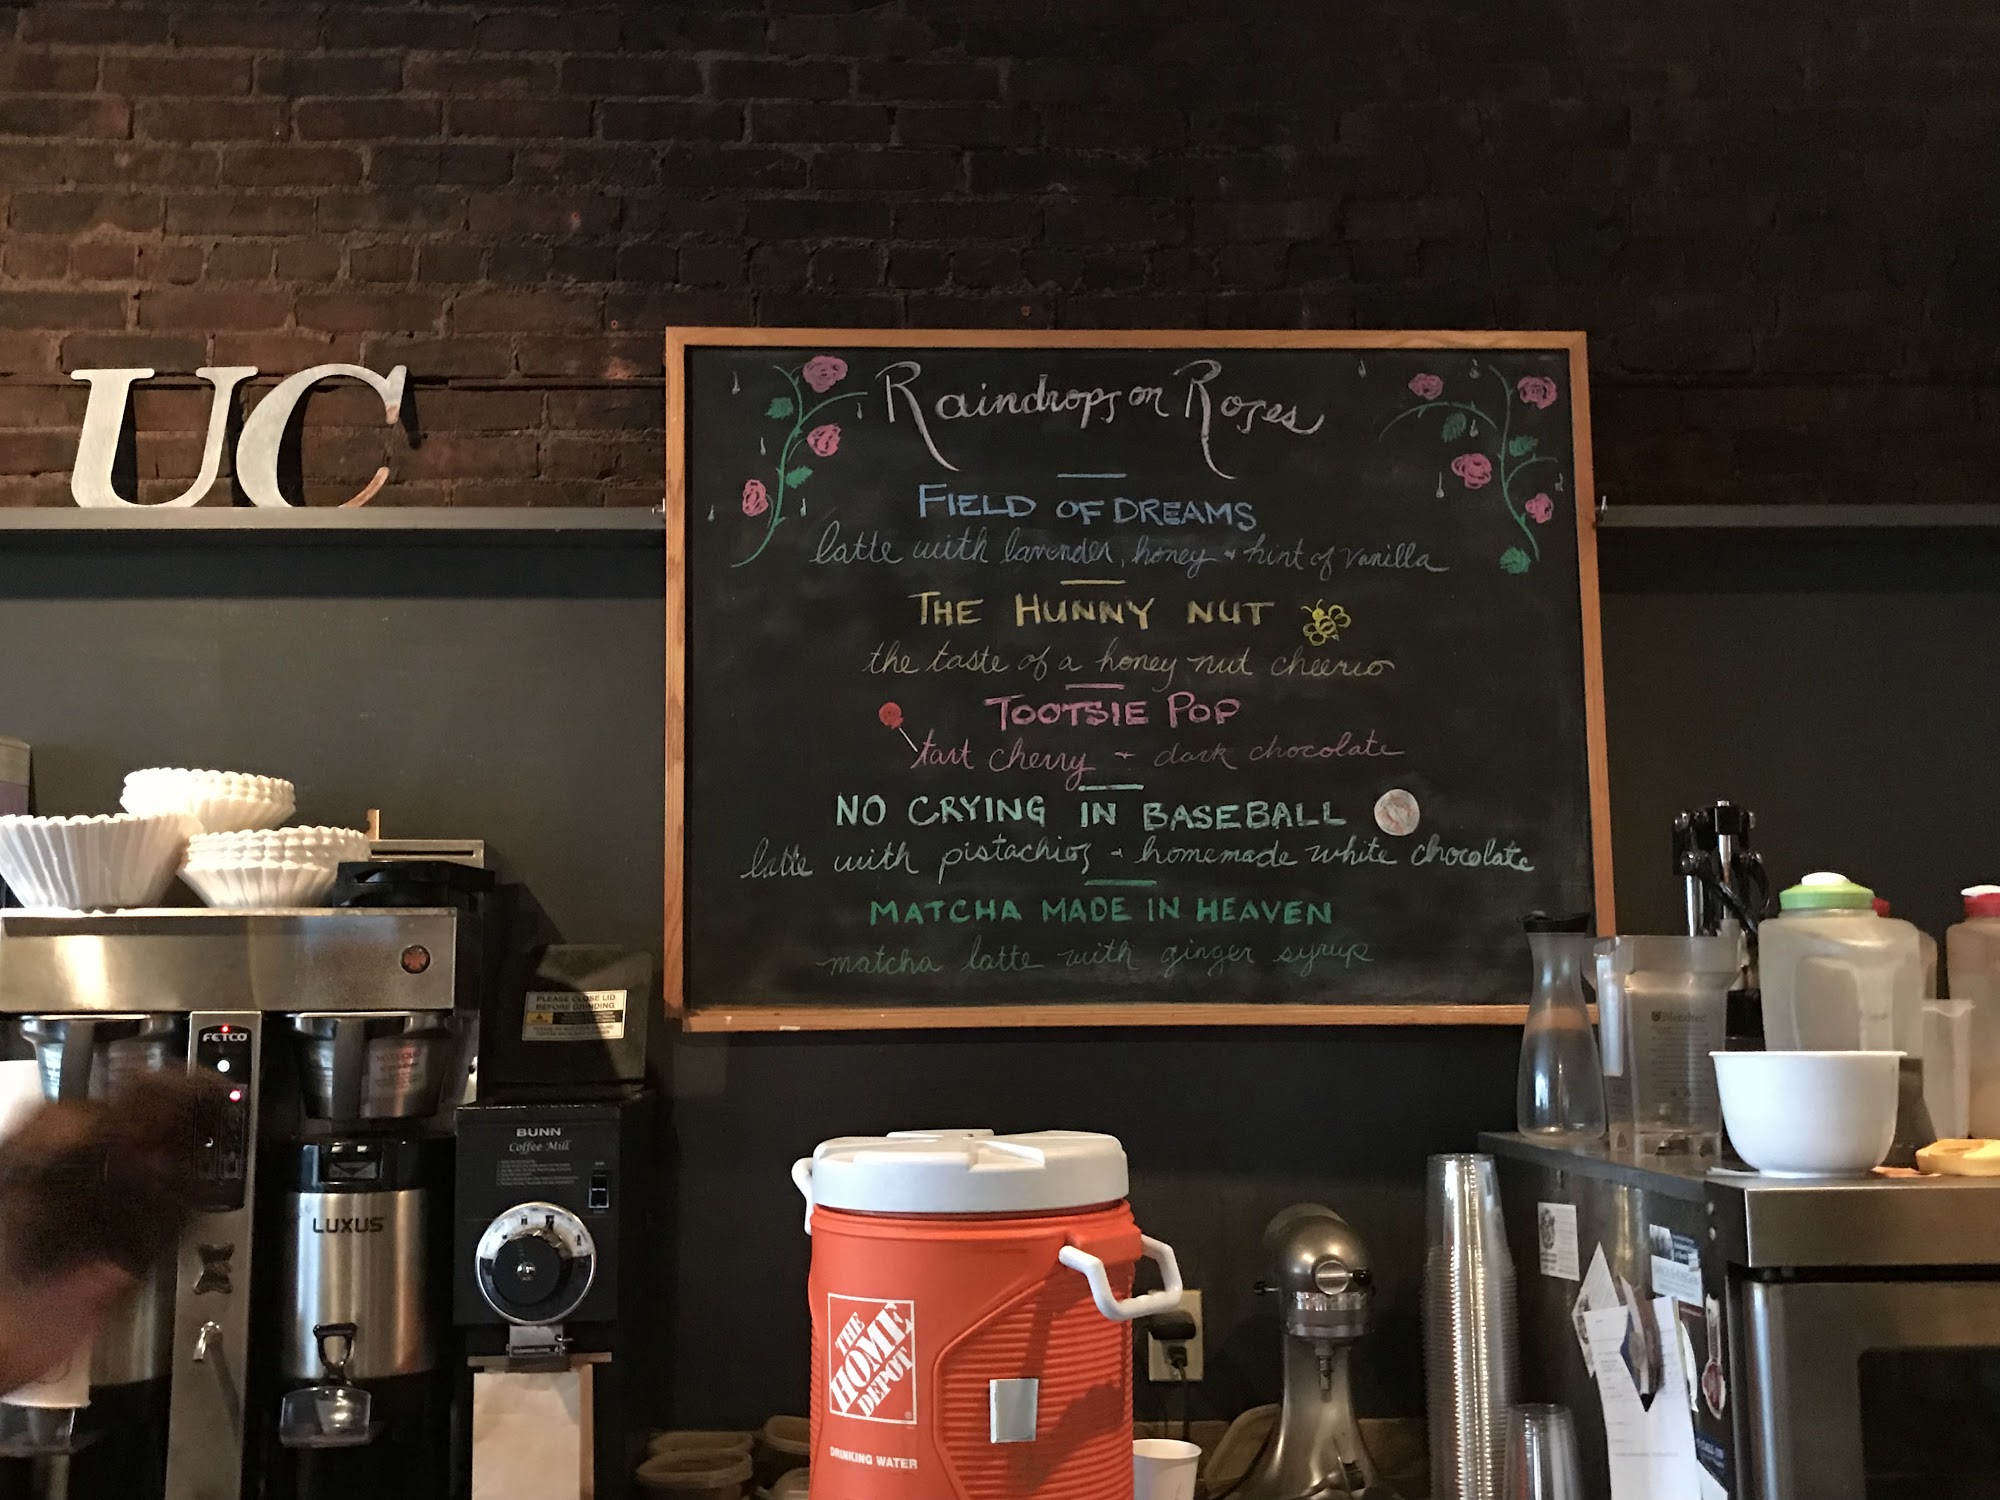 UC
Raindrops on Roses
FIELD OF DREAMS
latte with lavender, honey + hint of vanilla
THE HUNNY NUT
the taste of a honey nut cheerio
TOOTSIE POP
tart cherry + dark chocolate
NO CRYING IN BASEBALL
latte with pistachios + homemade white chocolate
MATCHA MADE IN HEAVEN
matcha latte with ginger syrup
PLEASE CLOSE LID
BEFORE GRINDING
FETCO
LUXUS
BUNN
Coffee Mill
THE
HOME
DEPOT
DRINKING WATER
Blendtec